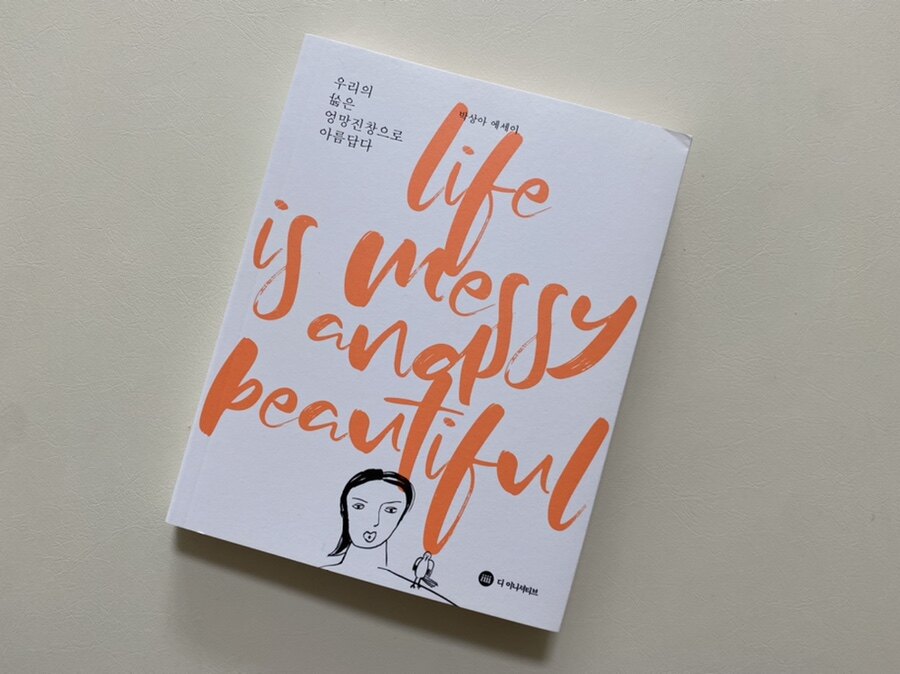 우리의
삶은
엉망진창으로
아름답다
박상아 에세이
life
is messy
and
beautiful
디 이니셔티브